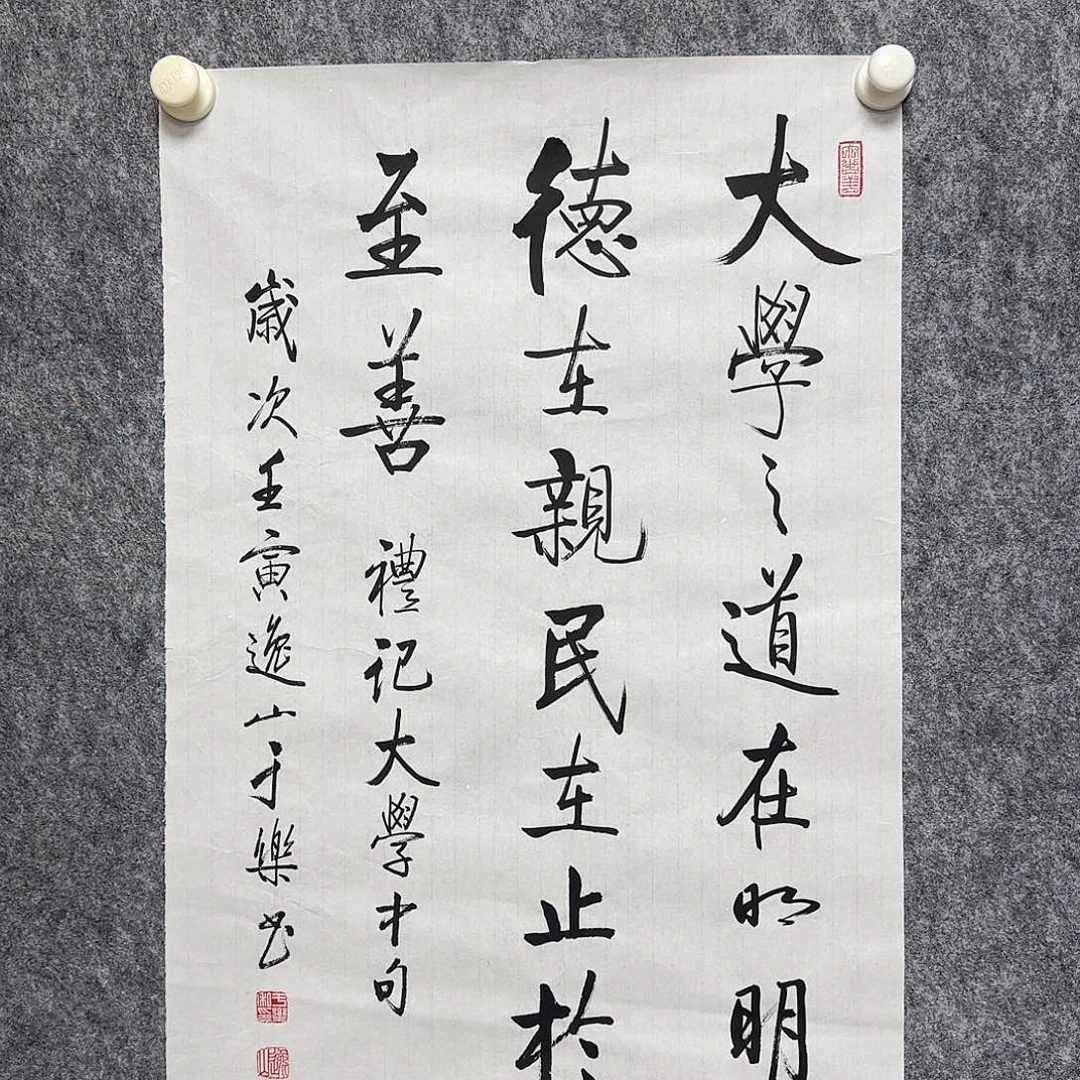 大學之道在明明
德在親民在止於
至善 禮记大學中句
歲次壬寅逸山于樂书